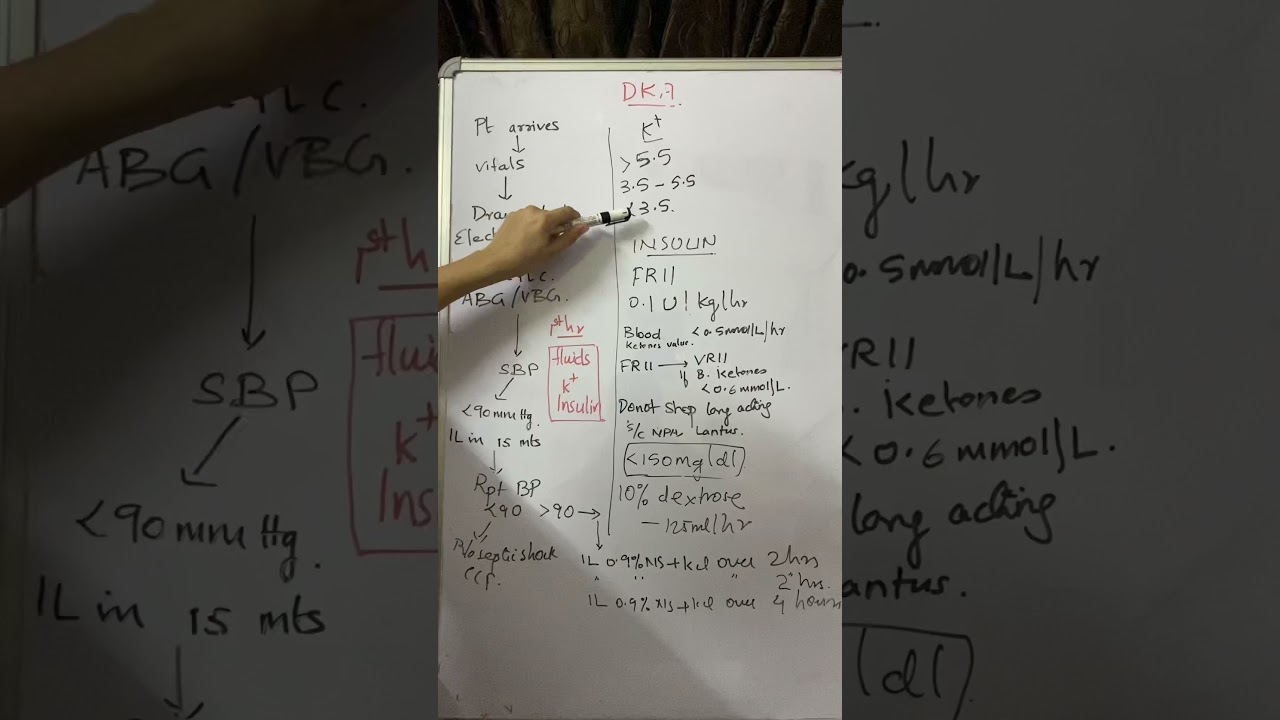 DKA
Pt arrives
vitals
ABG/VBG.
SBP
<90mmHg.
1L in 15 mts
Rpt BP
<90 >90 →
R/o septic shock
1st hr
fluids
K+
Insulin
K+
>5.5
3.5 - 5.5
<3.5.
INSULIN
FRII
0.1U/kg/hr
Blood <0.5mmol/L/hr
ketones value.
FRII → VRII
If B. ketones
<0.6mmol/L.
Donot stop long acting
S/c NPH Lantus.
<150mg/dl
10% dextrose
- 125ml/hr
1L 0.9% NS + kcl over 2hrs
" " " 2 hrs.
1L 0.9% NS + kcl over 4 hours